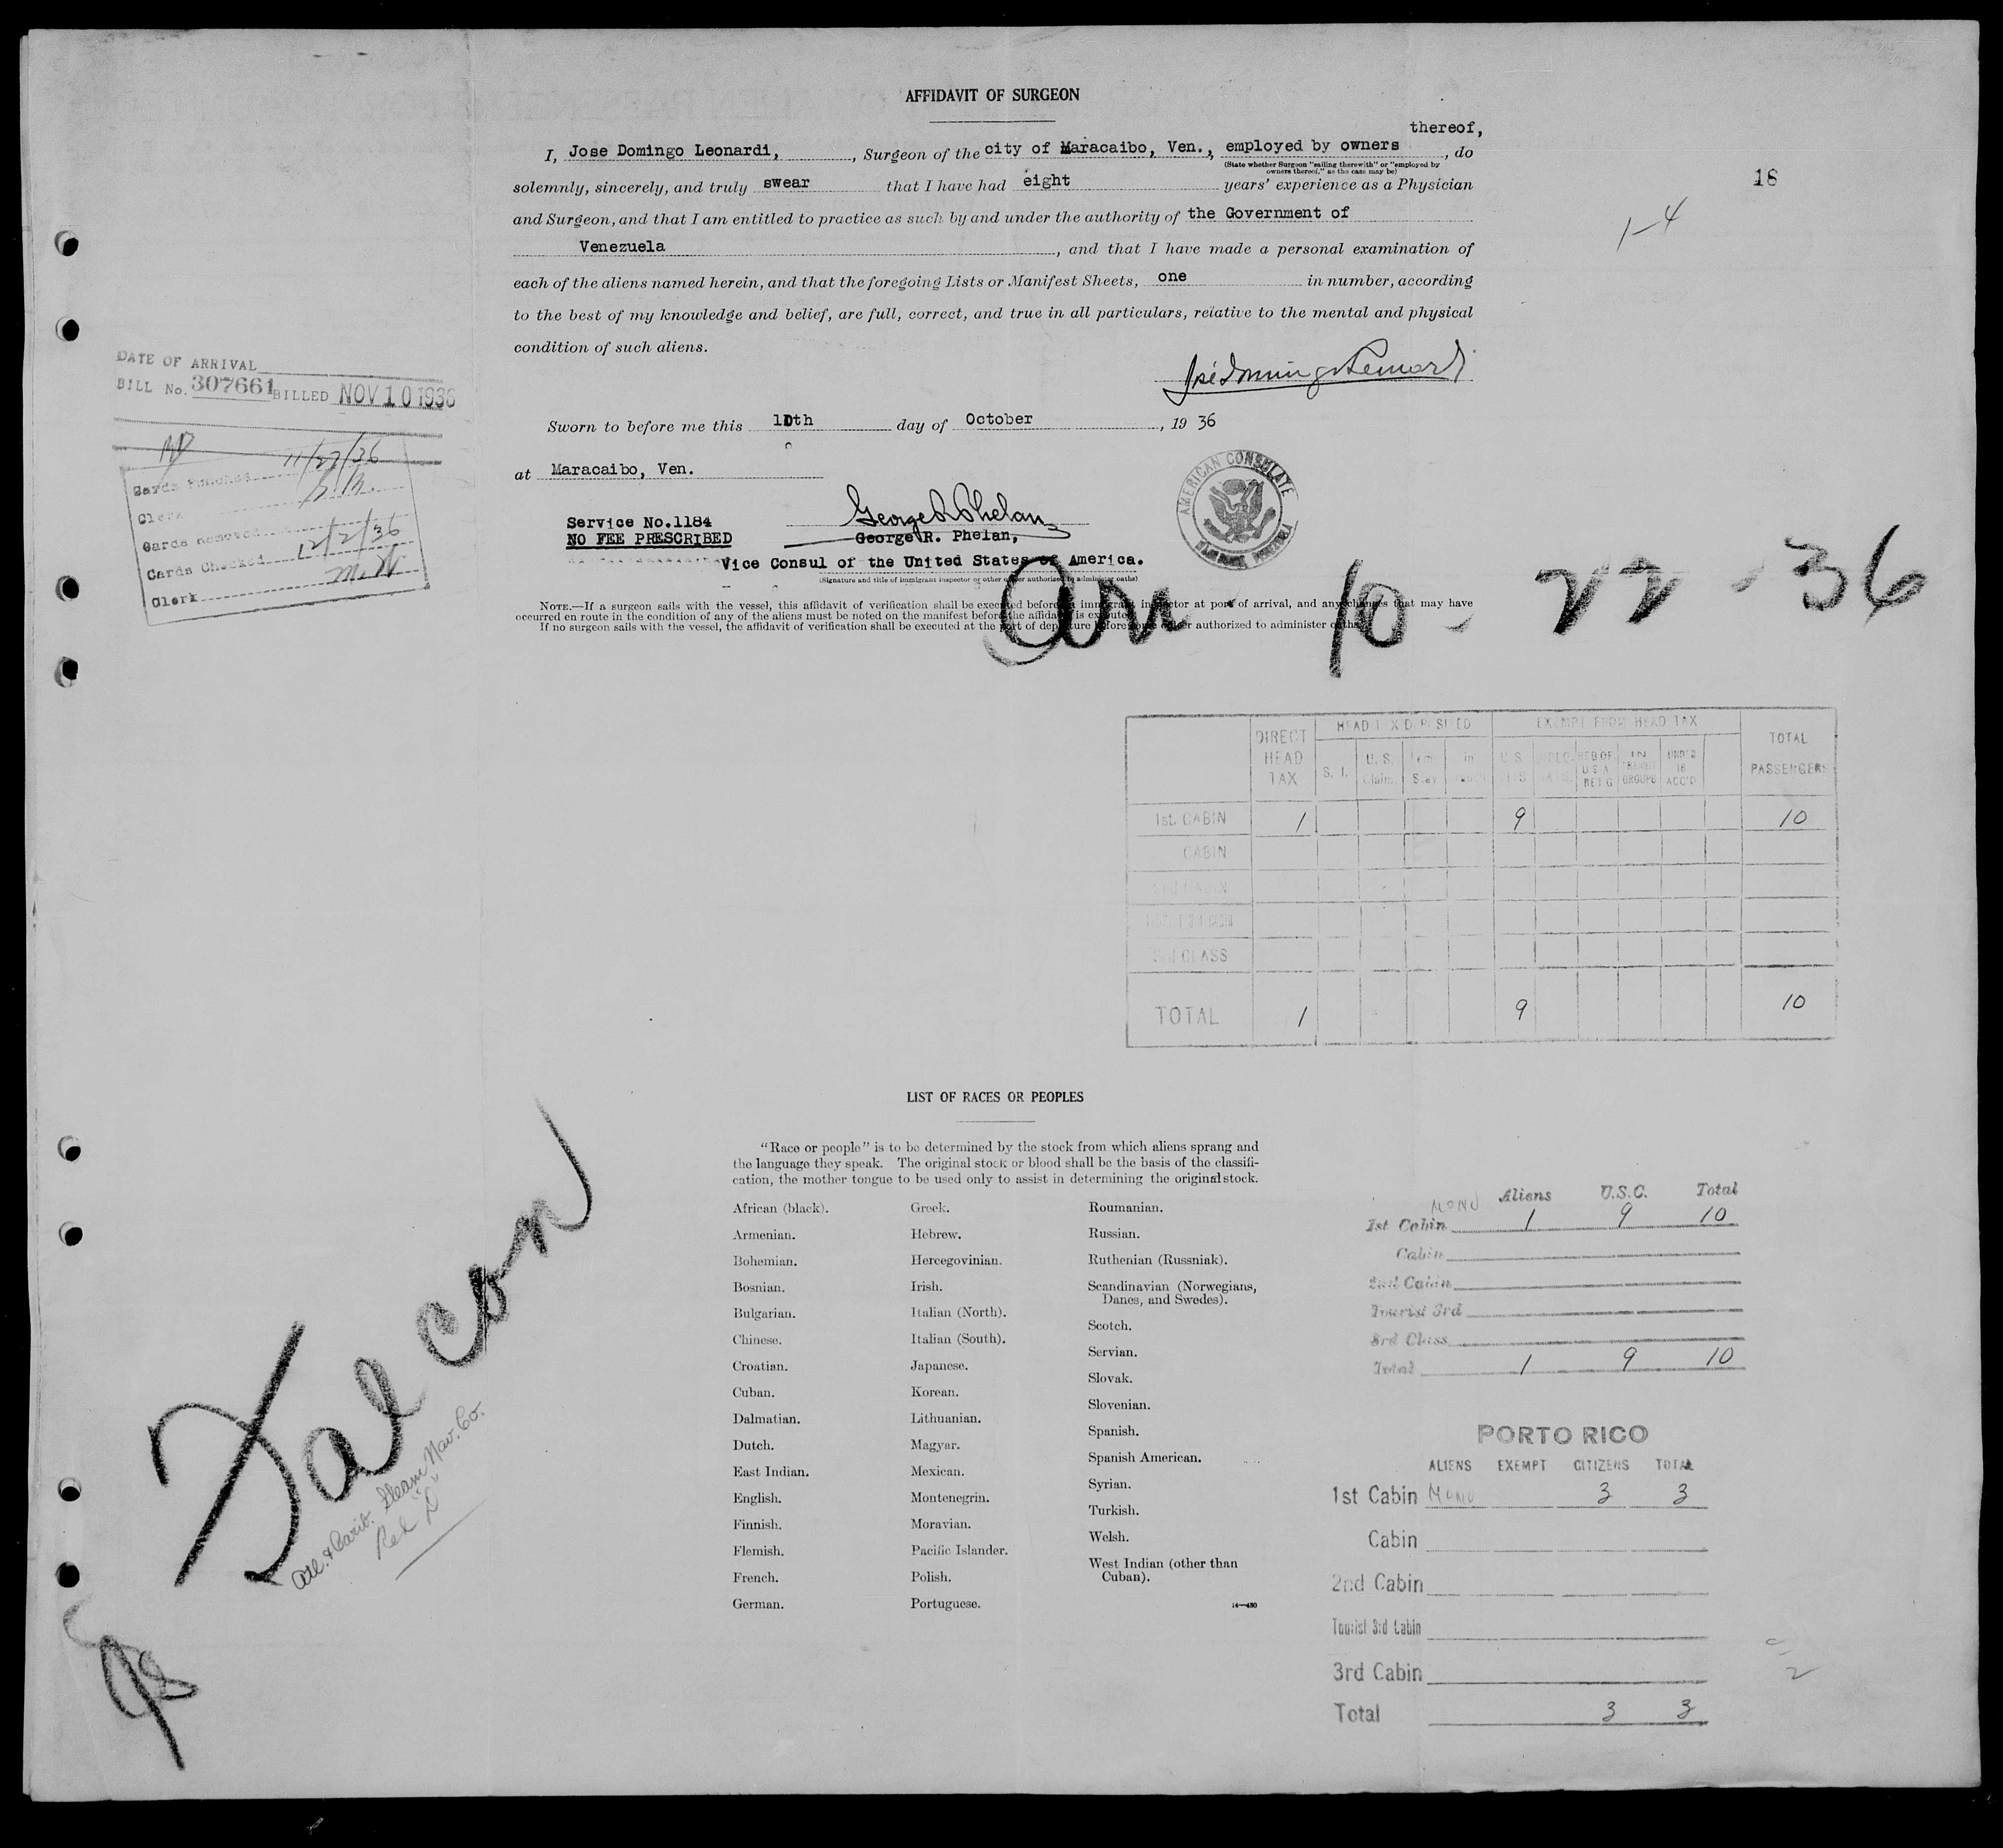 AFFIDAVIT OF SURGEON
thereof,
I, Jose Domingo Leonardi, , Surgeon of the city of Maracaibo, Ven., , employed by owners , do
(State whether Surgeon "sailing therewith" or "employed by
owners thereof," as the case may be)
solemnly, sincerely, and truly swear that I have had eight years' experience as a Physician
18
and Surgeon, and that I am entitled to practice as such by and under the authority of the Government of
1-4
Venezuela , and that I have made a personal examination of
each of the aliens named herein, and that the foregoing Lists or Manifest Sheets, one in number, according
to the best of my knowledge and belief, are full, correct, and true in all particulars, relative to the mental and physical
condition of such aliens.
DATE OF ARRIVAL
BILL No. 307661 BILLED NOV 10 1936
Sworn to before me this 10th day of October , 19 36
at Maracaibo, Ven.
11/27/36
Cards Punched
Clerk
Cards Removed
Cards Checked 12/2/36
Clerk M.W
AMERICAN CONSULATE
Service No.1184
NO FEE PRESCRIBED
George R. Phelan
George R. Phelan,
Vice Consul of the United States of America.
(Signature and title of immigrant inspector or other officer authorized to administer oaths)
Arr 10-22-36
NOTE.—If a surgeon sails with the vessel, this affidavit of verification shall be executed before an immigrant inspector at port of arrival, and any changes that may have
occurred en route in the condition of any of the aliens must be noted on the manifest before the affidavit is executed.
If no surgeon sails with the vessel, the affidavit of verification shall be executed at the port of departure before some officer authorized to administer oaths.
DIRECT HEAD TAX
HEAD TAX DEPOSITED
EXEMPT FROM HEAD TAX
TOTAL PASSENGERS
S. I. U. S. Claim. Temp Stay In U.S. REG OF U S A RET G IN TRANSIT GROUPS UNDER 16 ACC'D
1st. CABIN 1 9 10
CABIN
2nd CABIN
3rd CLASS
TOTAL 1 9 10
LIST OF RACES OR PEOPLES
"Race or people" is to be determined by the stock from which aliens sprang and
the language they speak. The original stock or blood shall be the basis of the classifi-
cation, the mother tongue to be used only to assist in determining the original stock.
African (black).
Armenian.
Bohemian.
Bosnian.
Bulgarian.
Chinese.
Croatian.
Cuban.
Dalmatian.
Dutch.
East Indian.
English.
Finnish.
Flemish.
French.
German.
Greek.
Hebrew.
Hercegovinian.
Irish.
Italian (North).
Italian (South).
Japanese.
Korean.
Lithuanian.
Magyar.
Mexican.
Montenegrin.
Moravian.
Pacific Islander.
Polish.
Portuguese.
Roumanian.
Russian.
Ruthenian (Russniak).
Scandinavian (Norwegians,
Danes, and Swedes).
Scotch.
Servian.
Slovak.
Slovenian.
Spanish.
Spanish American.
Syrian.
Turkish.
Welsh.
West Indian (other than
Cuban).
14—430
Falcon
Atl. & Carib. Steam Nav. Co.
Red "D"
MONU Aliens U.S.C. Total
1st Cabin 1 9 10
Cabin
2nd Cabin
Tourist 3rd
3rd Class
Total 1 9 10
PORTO RICO
ALIENS EXEMPT CITIZENS TOTAL
1st Cabin MONU 3 3
Cabin
2nd Cabin
Tourist 3rd Cabin
3rd Cabin
Total 3 3